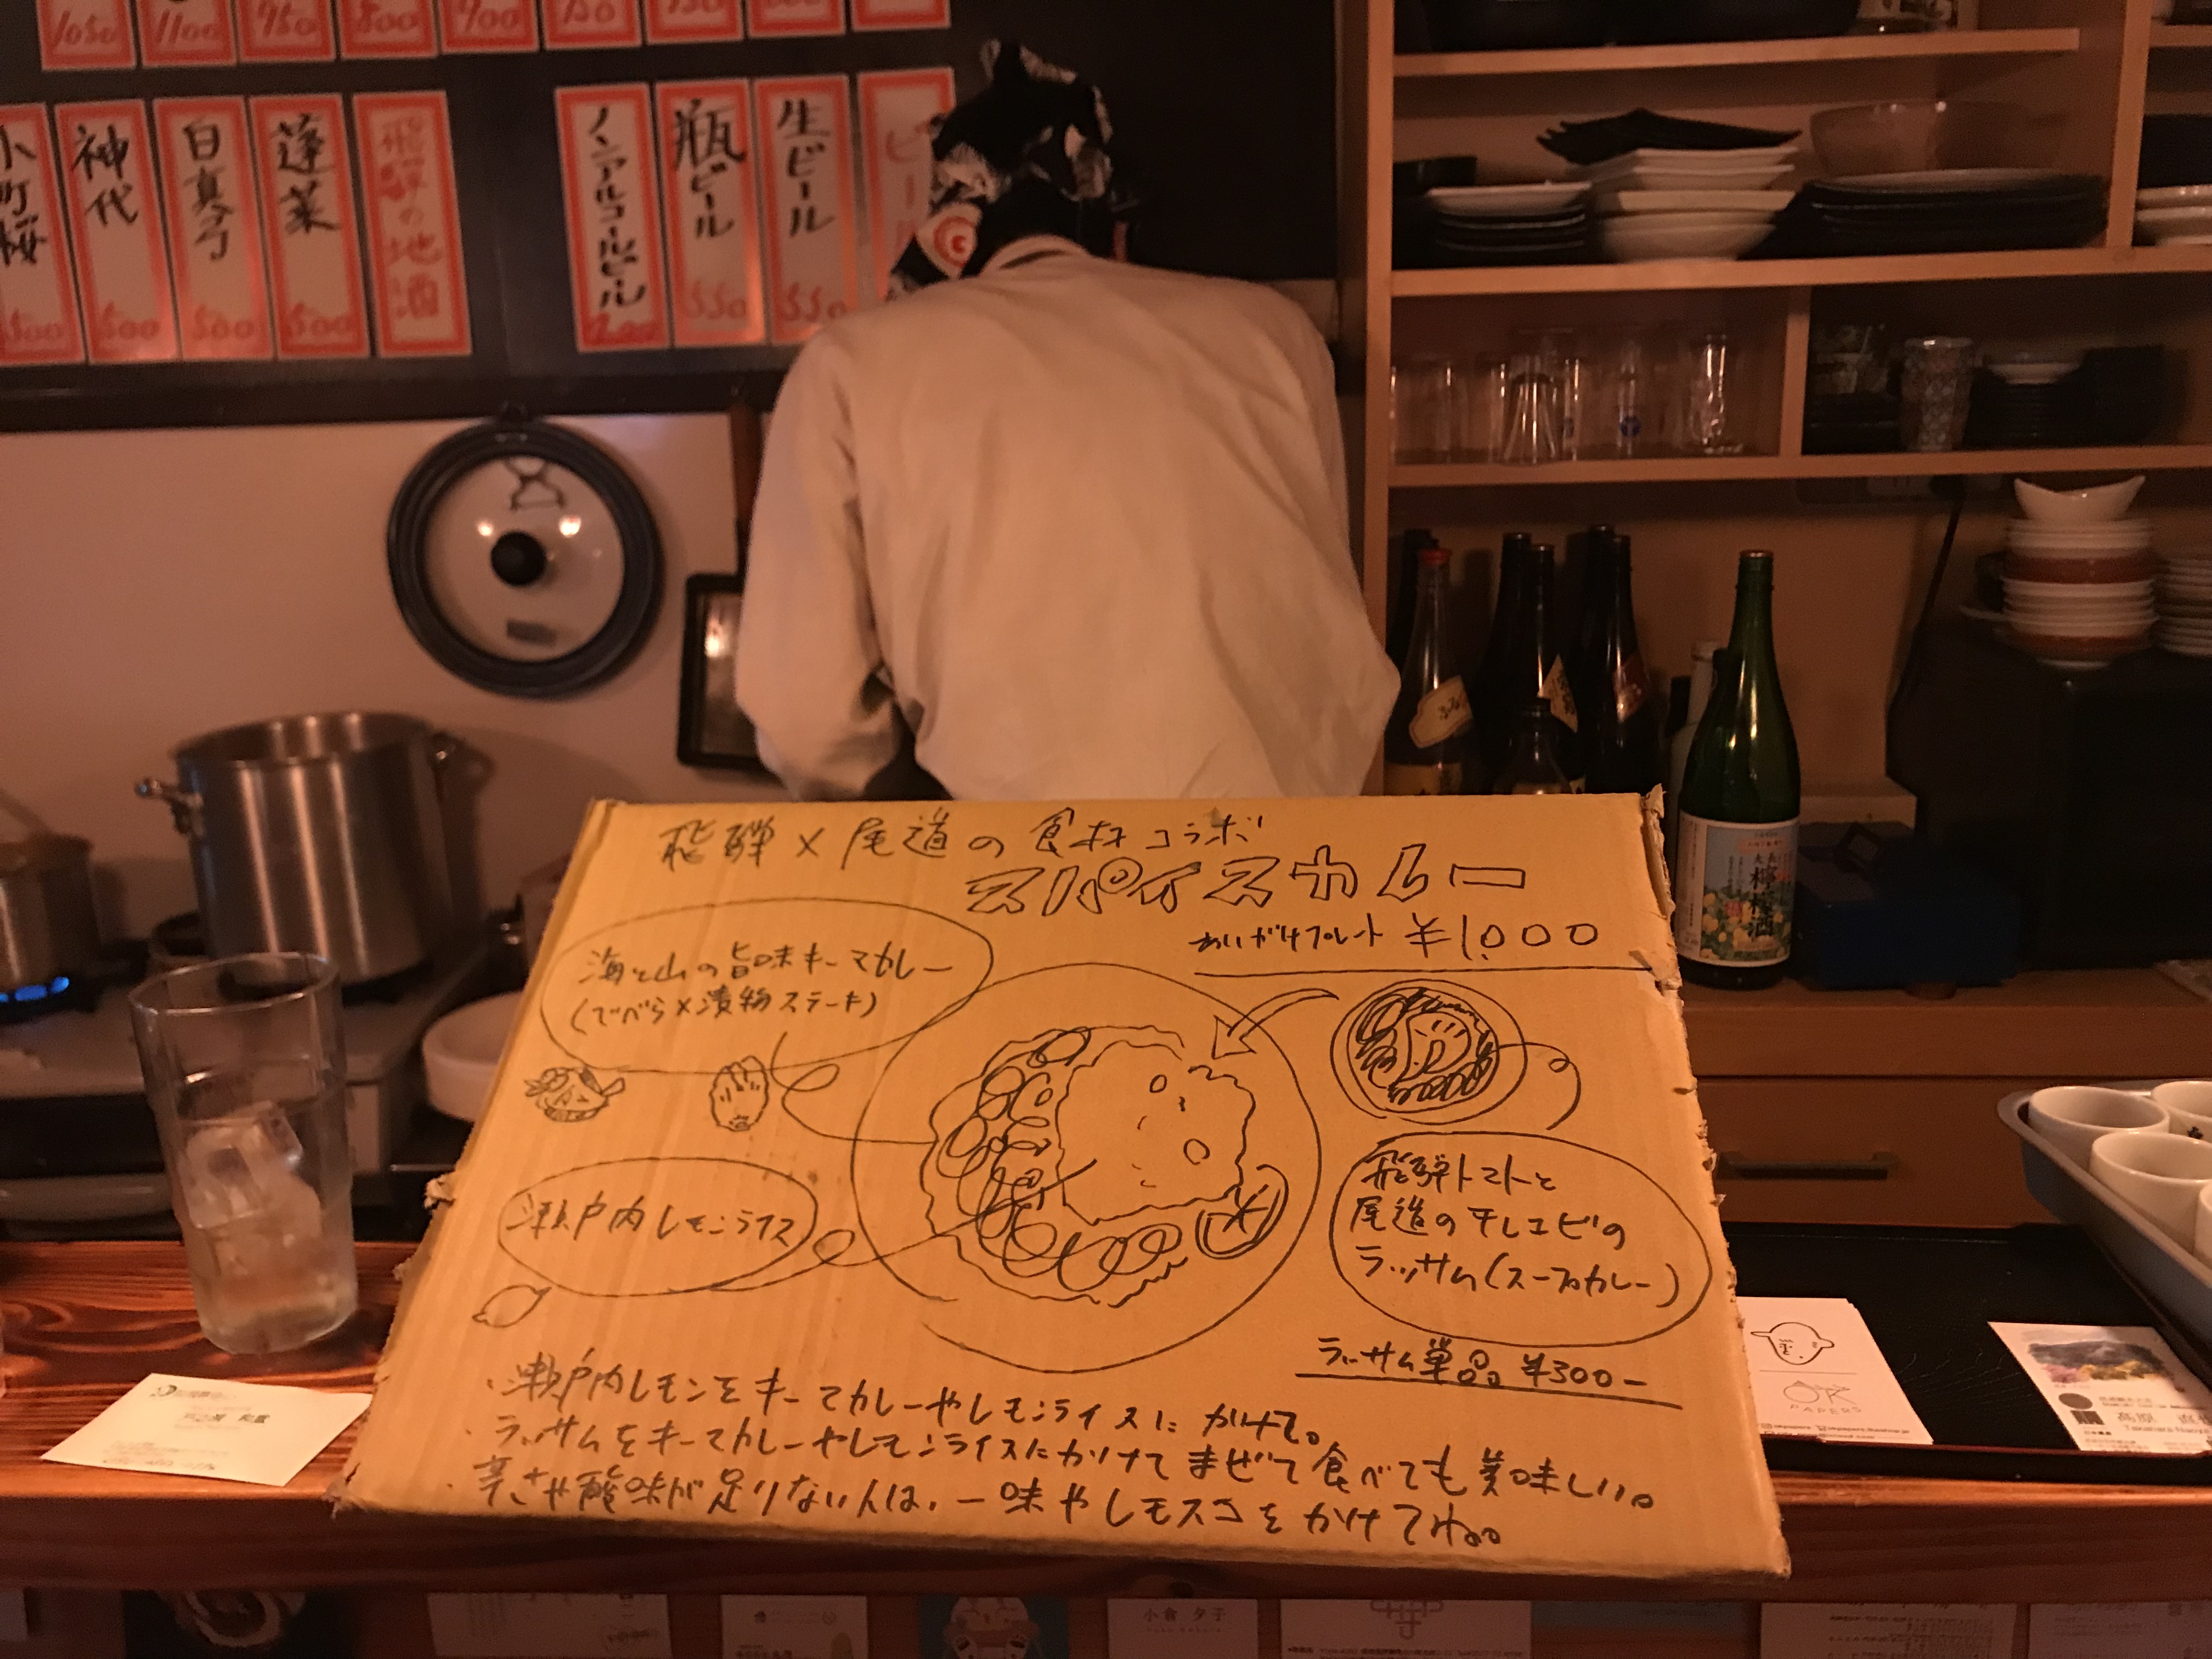 1050
1100
750
800
700
小町桜
500
神代
500
白真弓
500
蓬莱
500
飛騨の地酒
ノンアルコールビール
200
瓶ビール
550
生ビール
550
ビール
飛騨×尾道の食材コラボ
スパイスカレー
あいがけプレート ¥1,000
海と山の旨味キーマカレー
(でべら×漬物ステーキ)
瀬戸内レモンライス
飛騨トマトと
尾道の干しエビの
ラッサム(スープカレー)
ラッサム単品 ¥300-
・瀬戸内レモンをキーマカレーやレモンライスにかけて。
・ラッサムをキーマカレーやレモンライスにかけてまぜて食べても美味しい。
・辛さや酸味が足りない人は、一味やレモスコをかけてね。
檸檬酒
OK
PAPERS
小倉 夕子